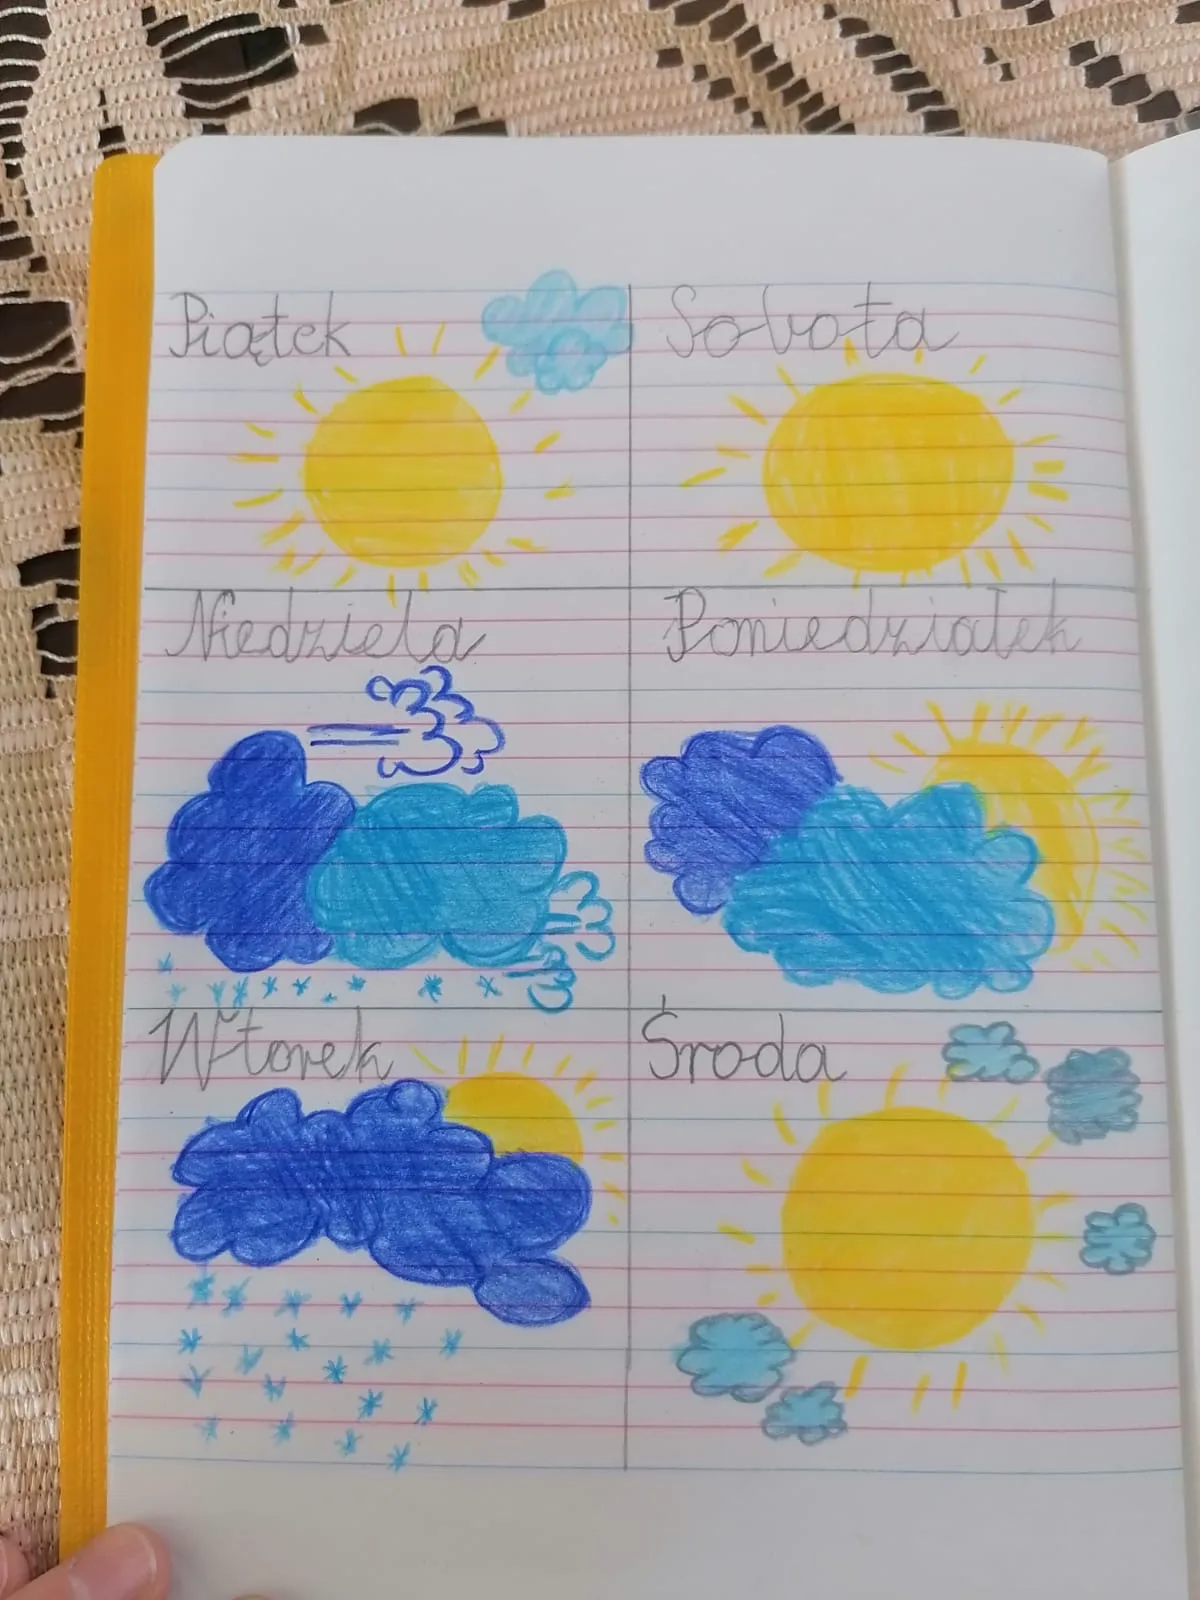 Piątek
Sobota
Niedziela
Poniedziałek
Wtorek
Środa